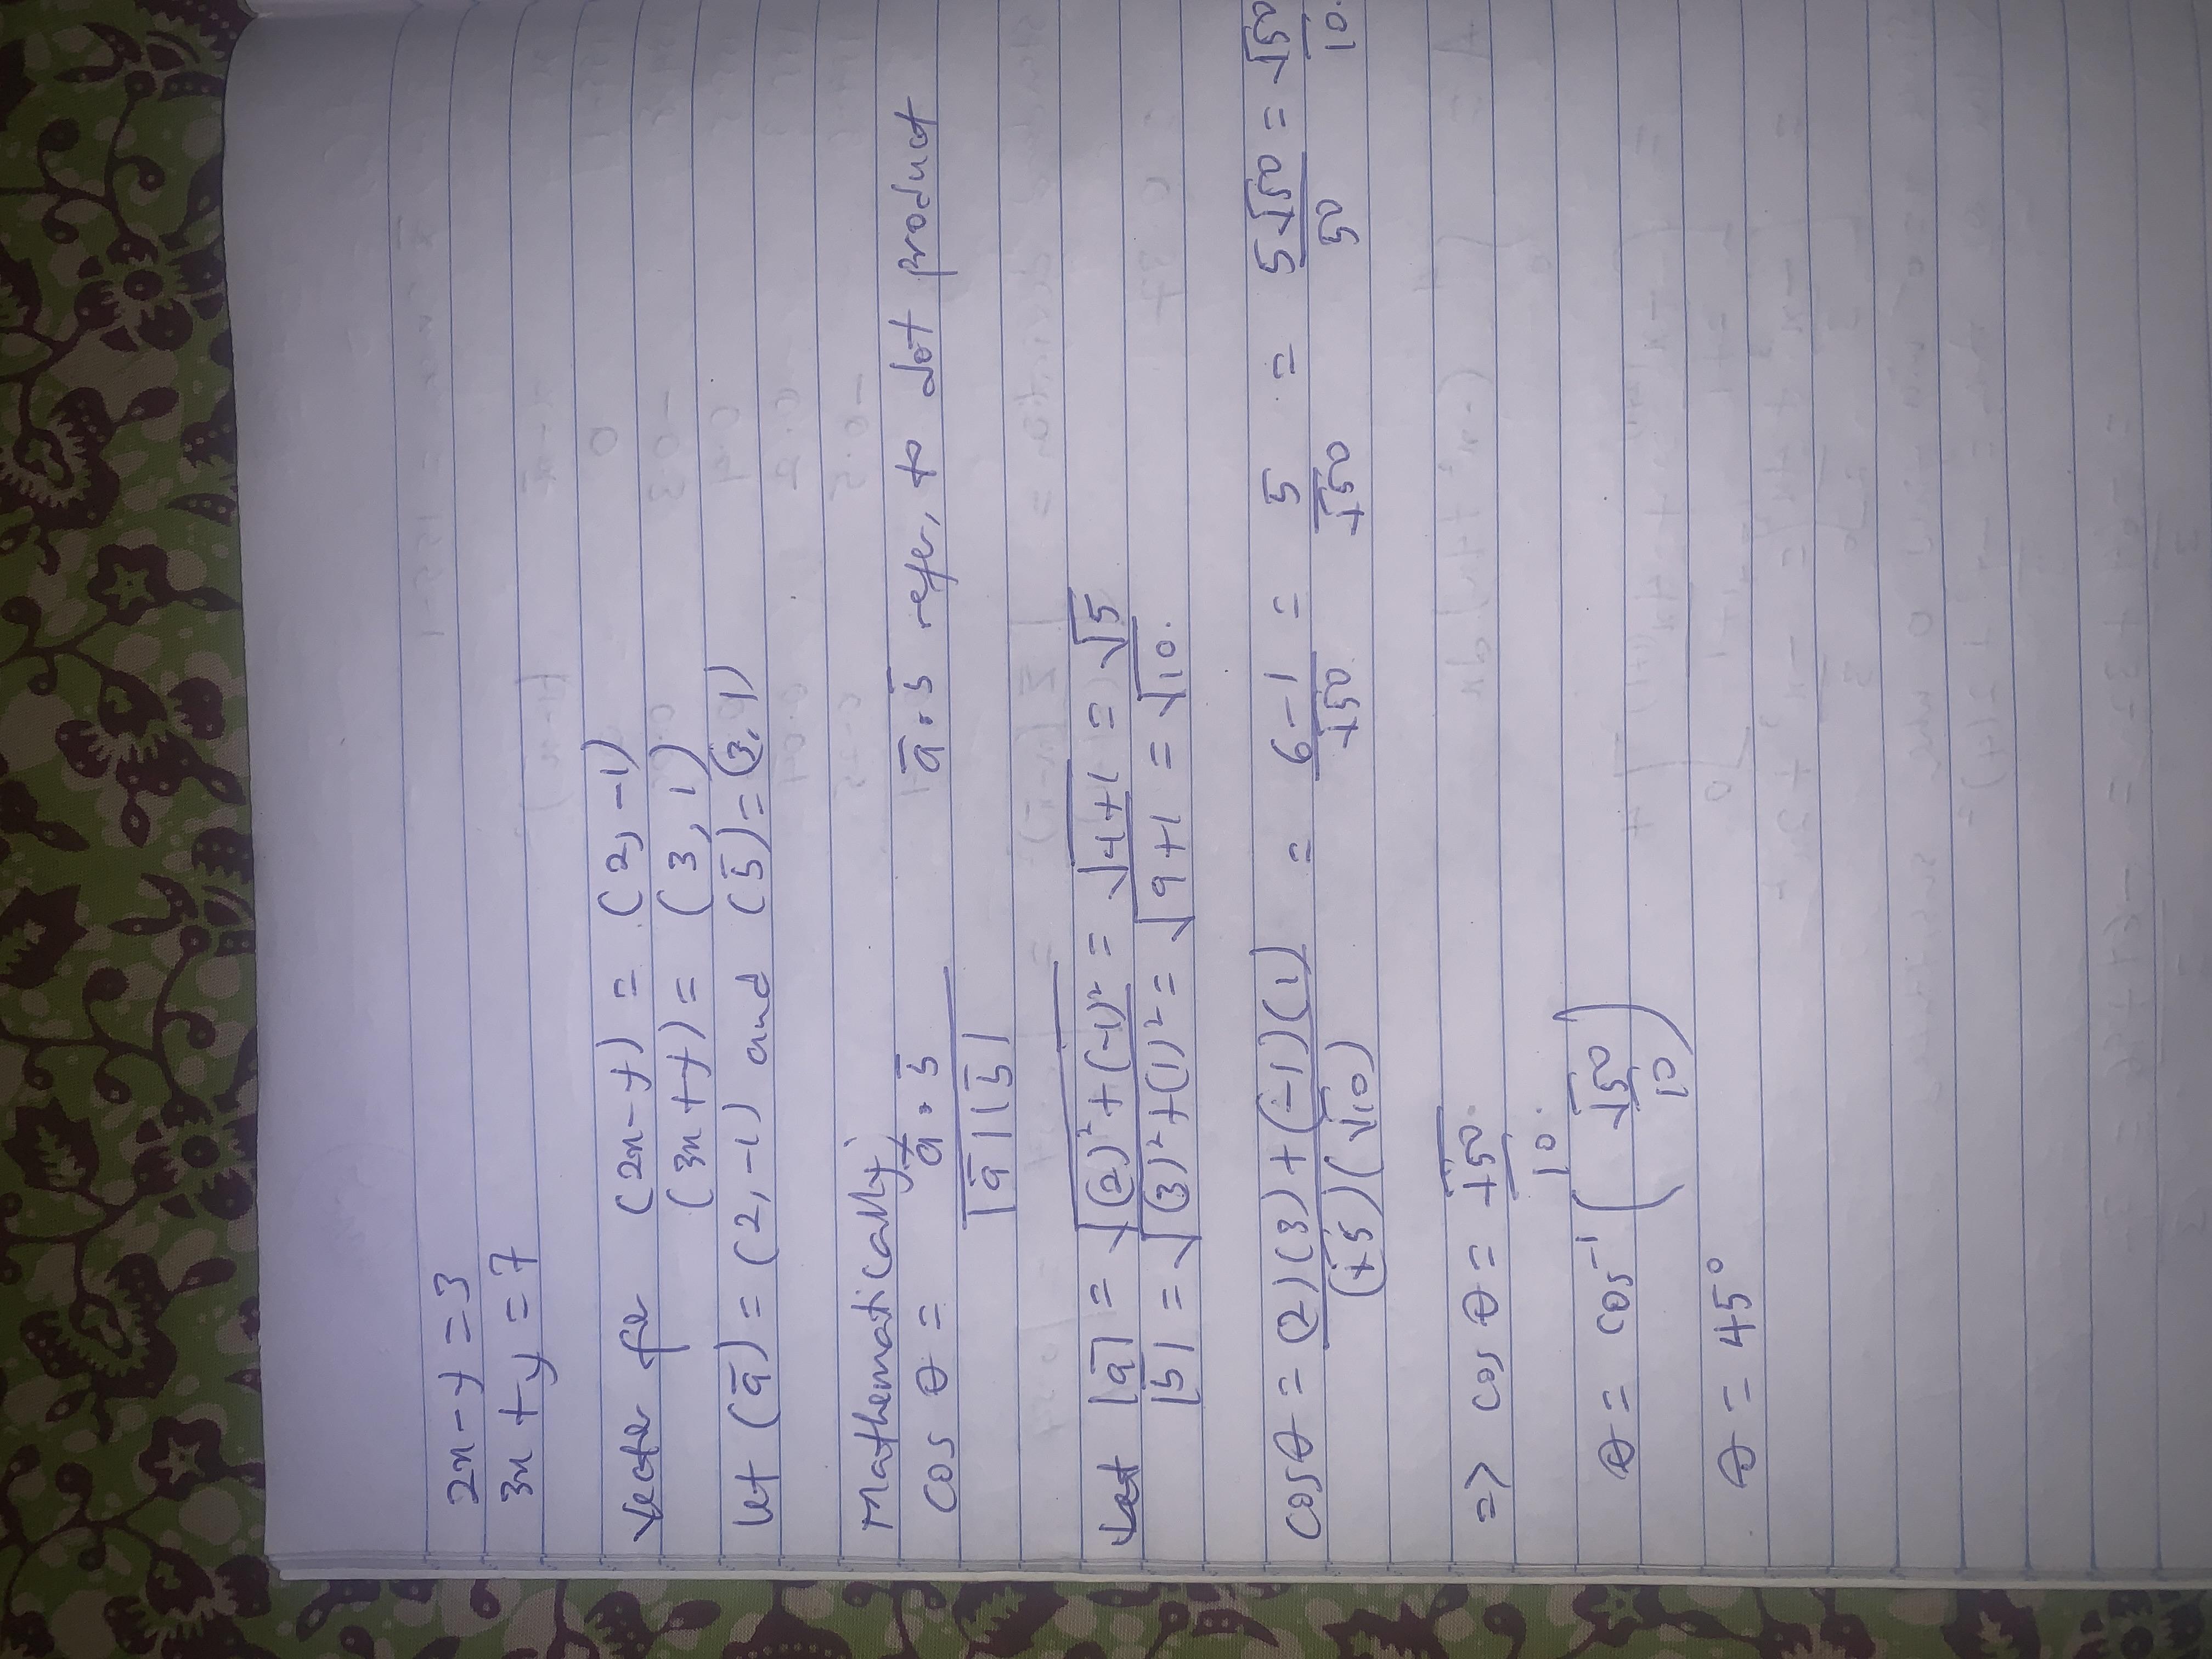 2x - y = 3
3x + y = 7
Vector for (2x - y) = (2, -1)
(3x + y) = (3, 1)
let (a̅) = (2, -1) and (b̅) = (3, 1)
Mathematically,
cos θ = a̅ . b̅ / |a̅||b̅|    a̅ . b̅ refer, to dot product
let |a̅| = √(2)² + (-1)² = √4+1 = √5
|b̅| = √(3)² + (1)² = √9+1 = √10.
cos θ = (2)(3) + (-1)(1) / (√5)(√10) = 6-1 / √50 = 5 / √50 = 5√50 / 50 = √50 / 10.
=> cos θ = √50 / 10.
θ = cos⁻¹ (√50 / 10)
θ = 45°